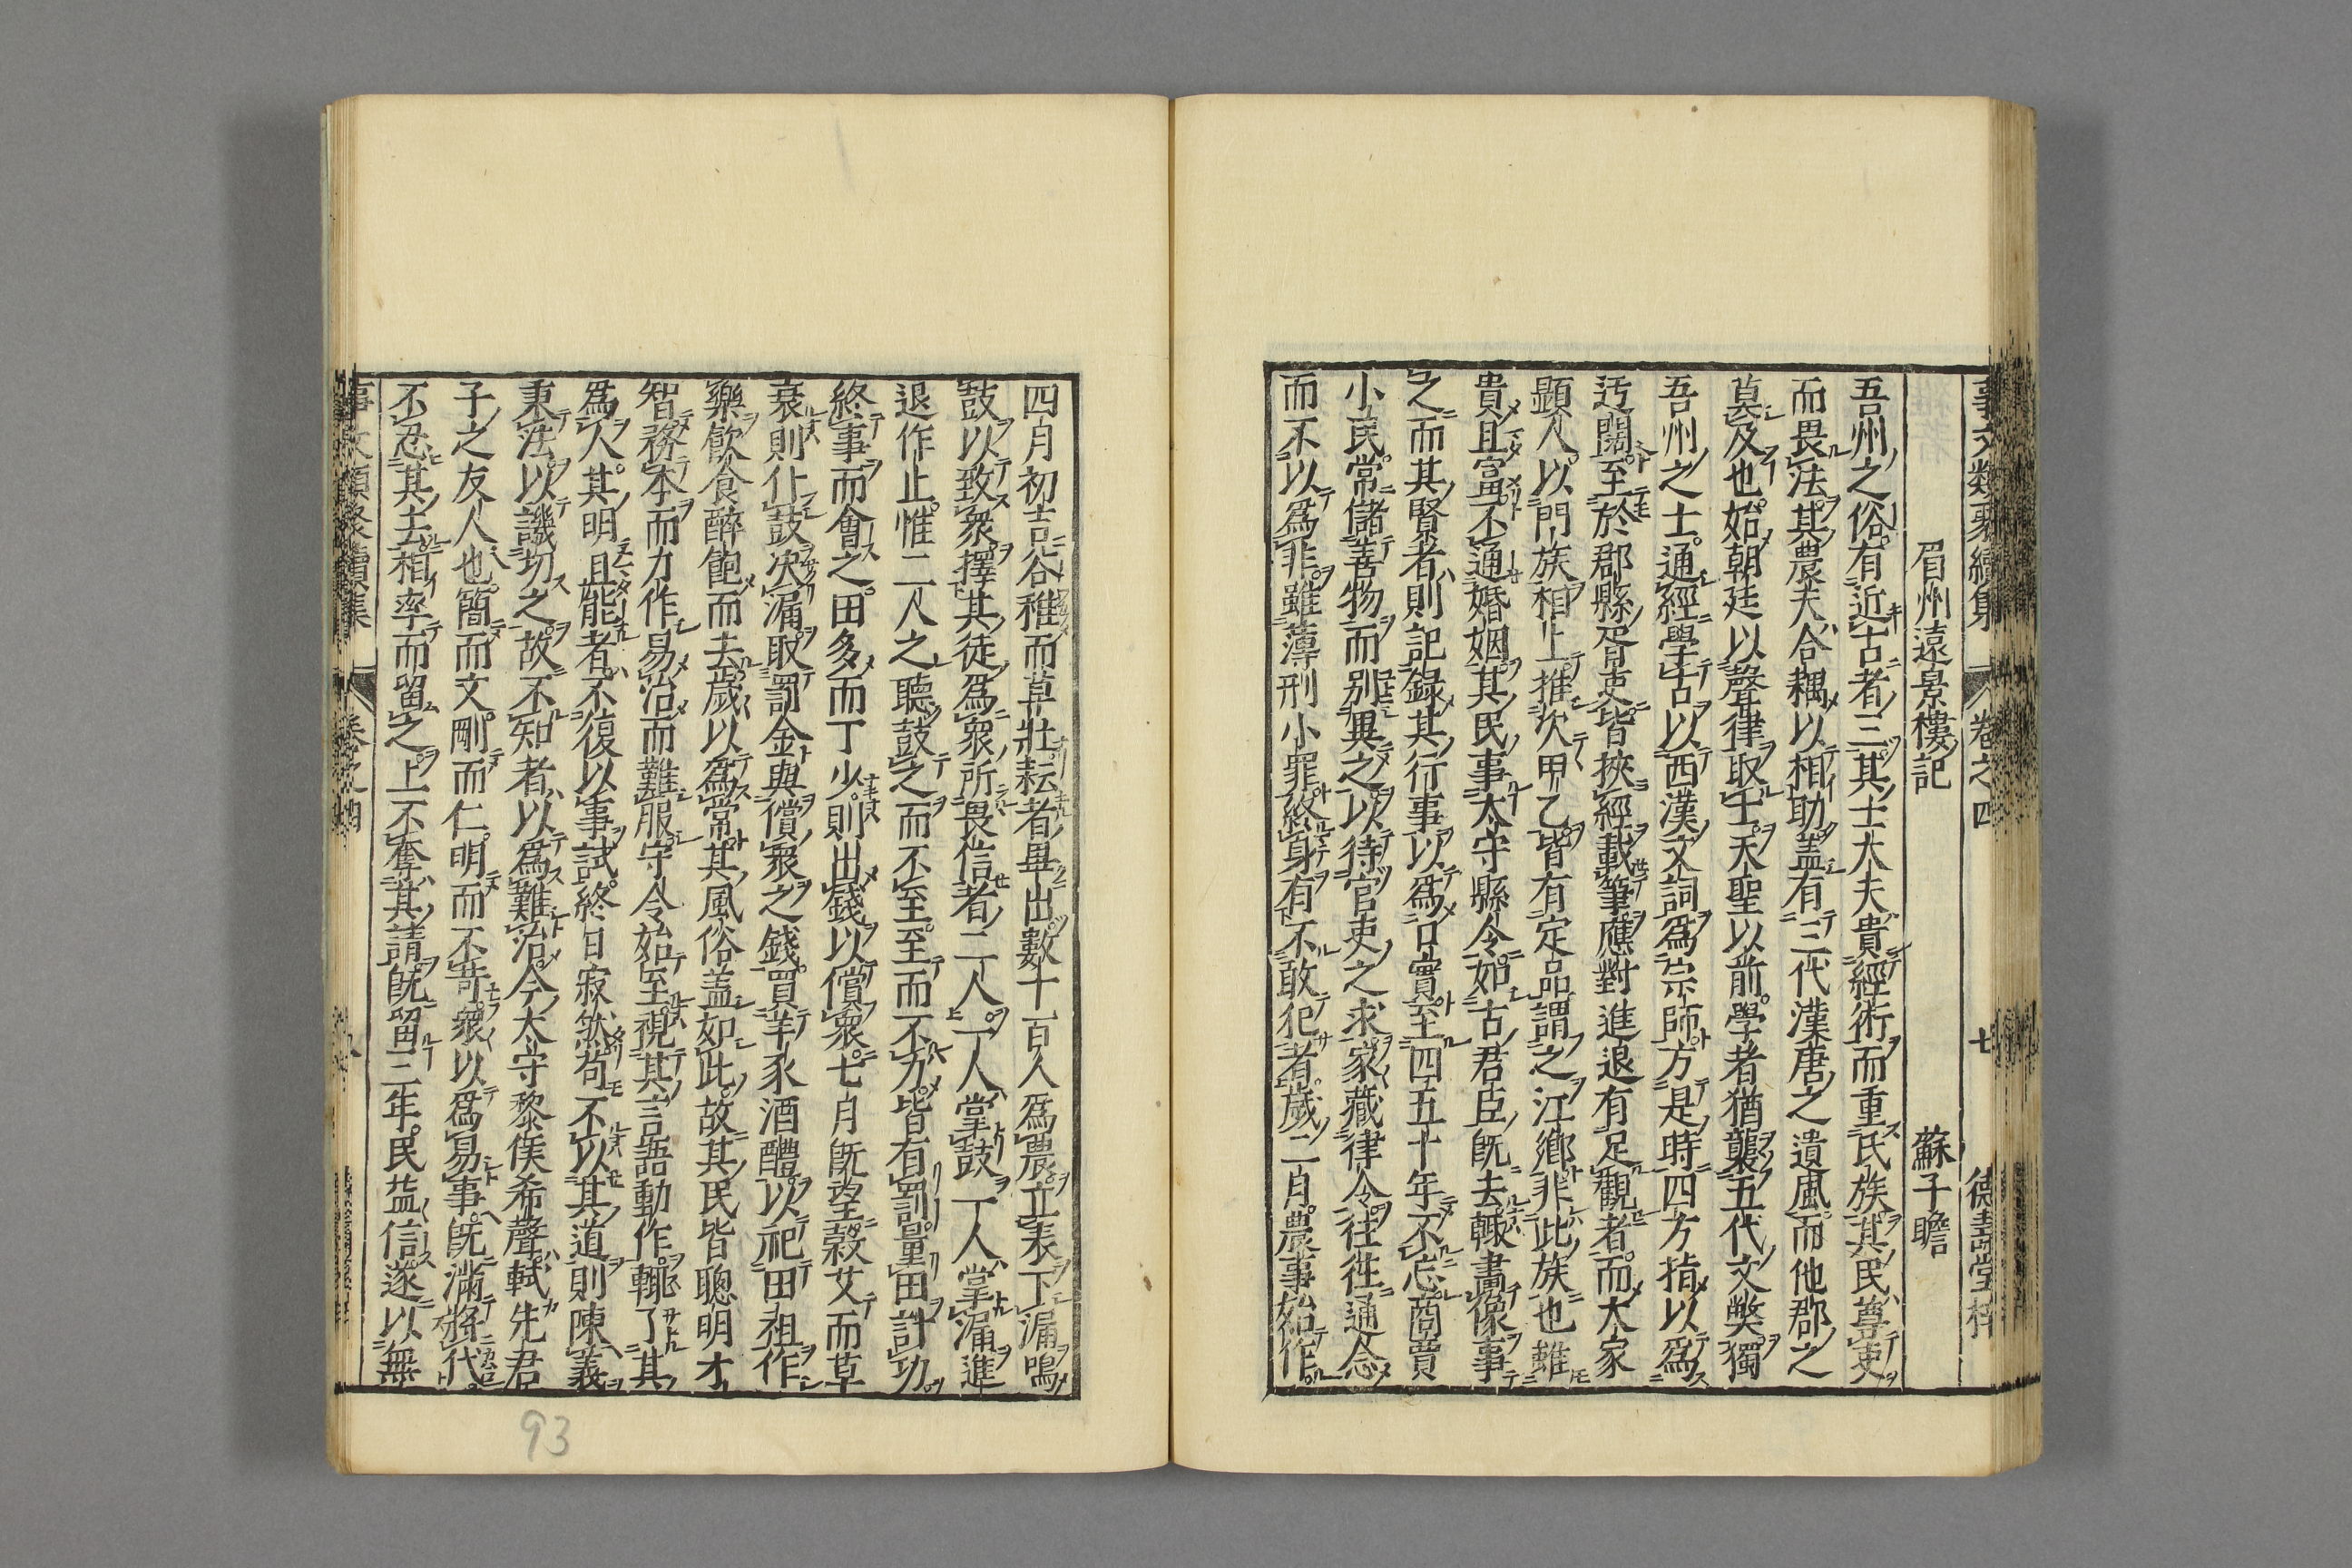 事文類聚續集 卷之四 七 德壽堂梓
眉州遠景樓記 蘇子瞻
吾州之俗有近古者三其士大夫貴經術而重氏族其民尊吏
而畏法其農夫合耦以相助盖有三代漢唐之遺風而他郡之
莫及也始朝廷以聲律取士天聖以前學者猶襲五代文獘獨
吾州之士通經學古以西漢文詞爲宗師方是時四方指以爲
迂闊至於郡縣胥吏皆挾經載筆應對進退有足觀者而大家
顯人以門族相上推次甲乙皆有定品謂之江鄉非此族也雖
貴且富不通婚姻其民事太守縣令如古君臣既去輙畫像事
之而其賢者則記錄其行事以爲口實至四五十年不忘商賈
小民常儲善物而別異之以待官吏之求家藏律令徃徃通念
而不以爲非雖薄刑小罪終身有不敢犯者歲二月農事始作
四月初吉谷稚而草壯耘者畢出數十百人爲農立表下漏鳴
鼓以致衆擇其徒爲衆所畏信者二人一人掌鼓一人掌漏進
退作止惟二人之聽鼓之而不至至而不力皆有罰量田計功
終事而會之田多而丁少則出錢以償衆七月既望穀艾而草
衰則仆鼓决漏取罰金與償衆之錢買羊豕酒醴以祀田祖作
樂飮食醉飽而去歲以爲常其風俗盖如此故其民皆聰明才
智務本而力作易治而難服守令始至視其言語動作輙了其
爲人其明且能者不復以事試終日寂然苟不以其道則陳義
秉法以譏切之故不知者以爲難治今太守黎侯希聲軾先君
子之友人也簡而文剛而仁明而不苛衆以爲易事既滿將代
不忍其去相率而留之上不奪其請既留三年民益信遂以無
事文類聚續集